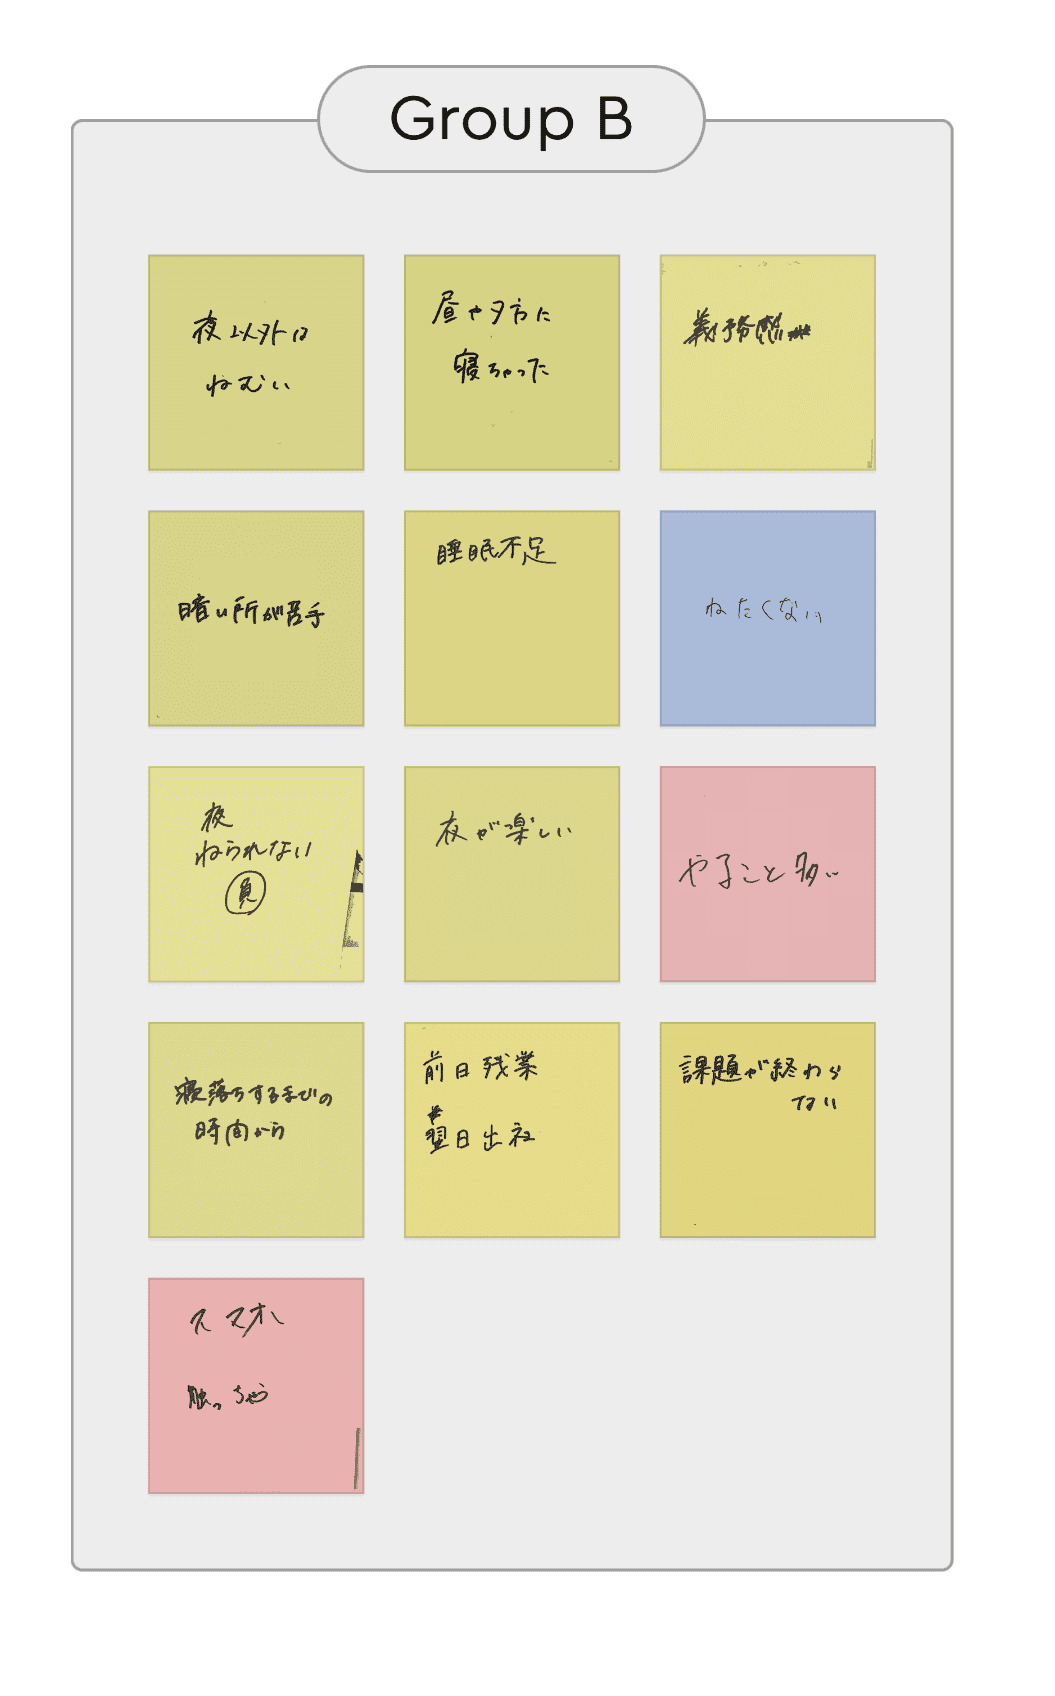 Group B
夜以外は
ねむい
昼や夕方に
寝ちゃった
義務感
暗い所が苦手
睡眠不足
ねたくない
夜
ねられない
負
夜が楽しい
やること多い
寝落ちするまでの
時間から
前日残業
翌日出社
課題が終わら
ない
スマホ
触っちゃう